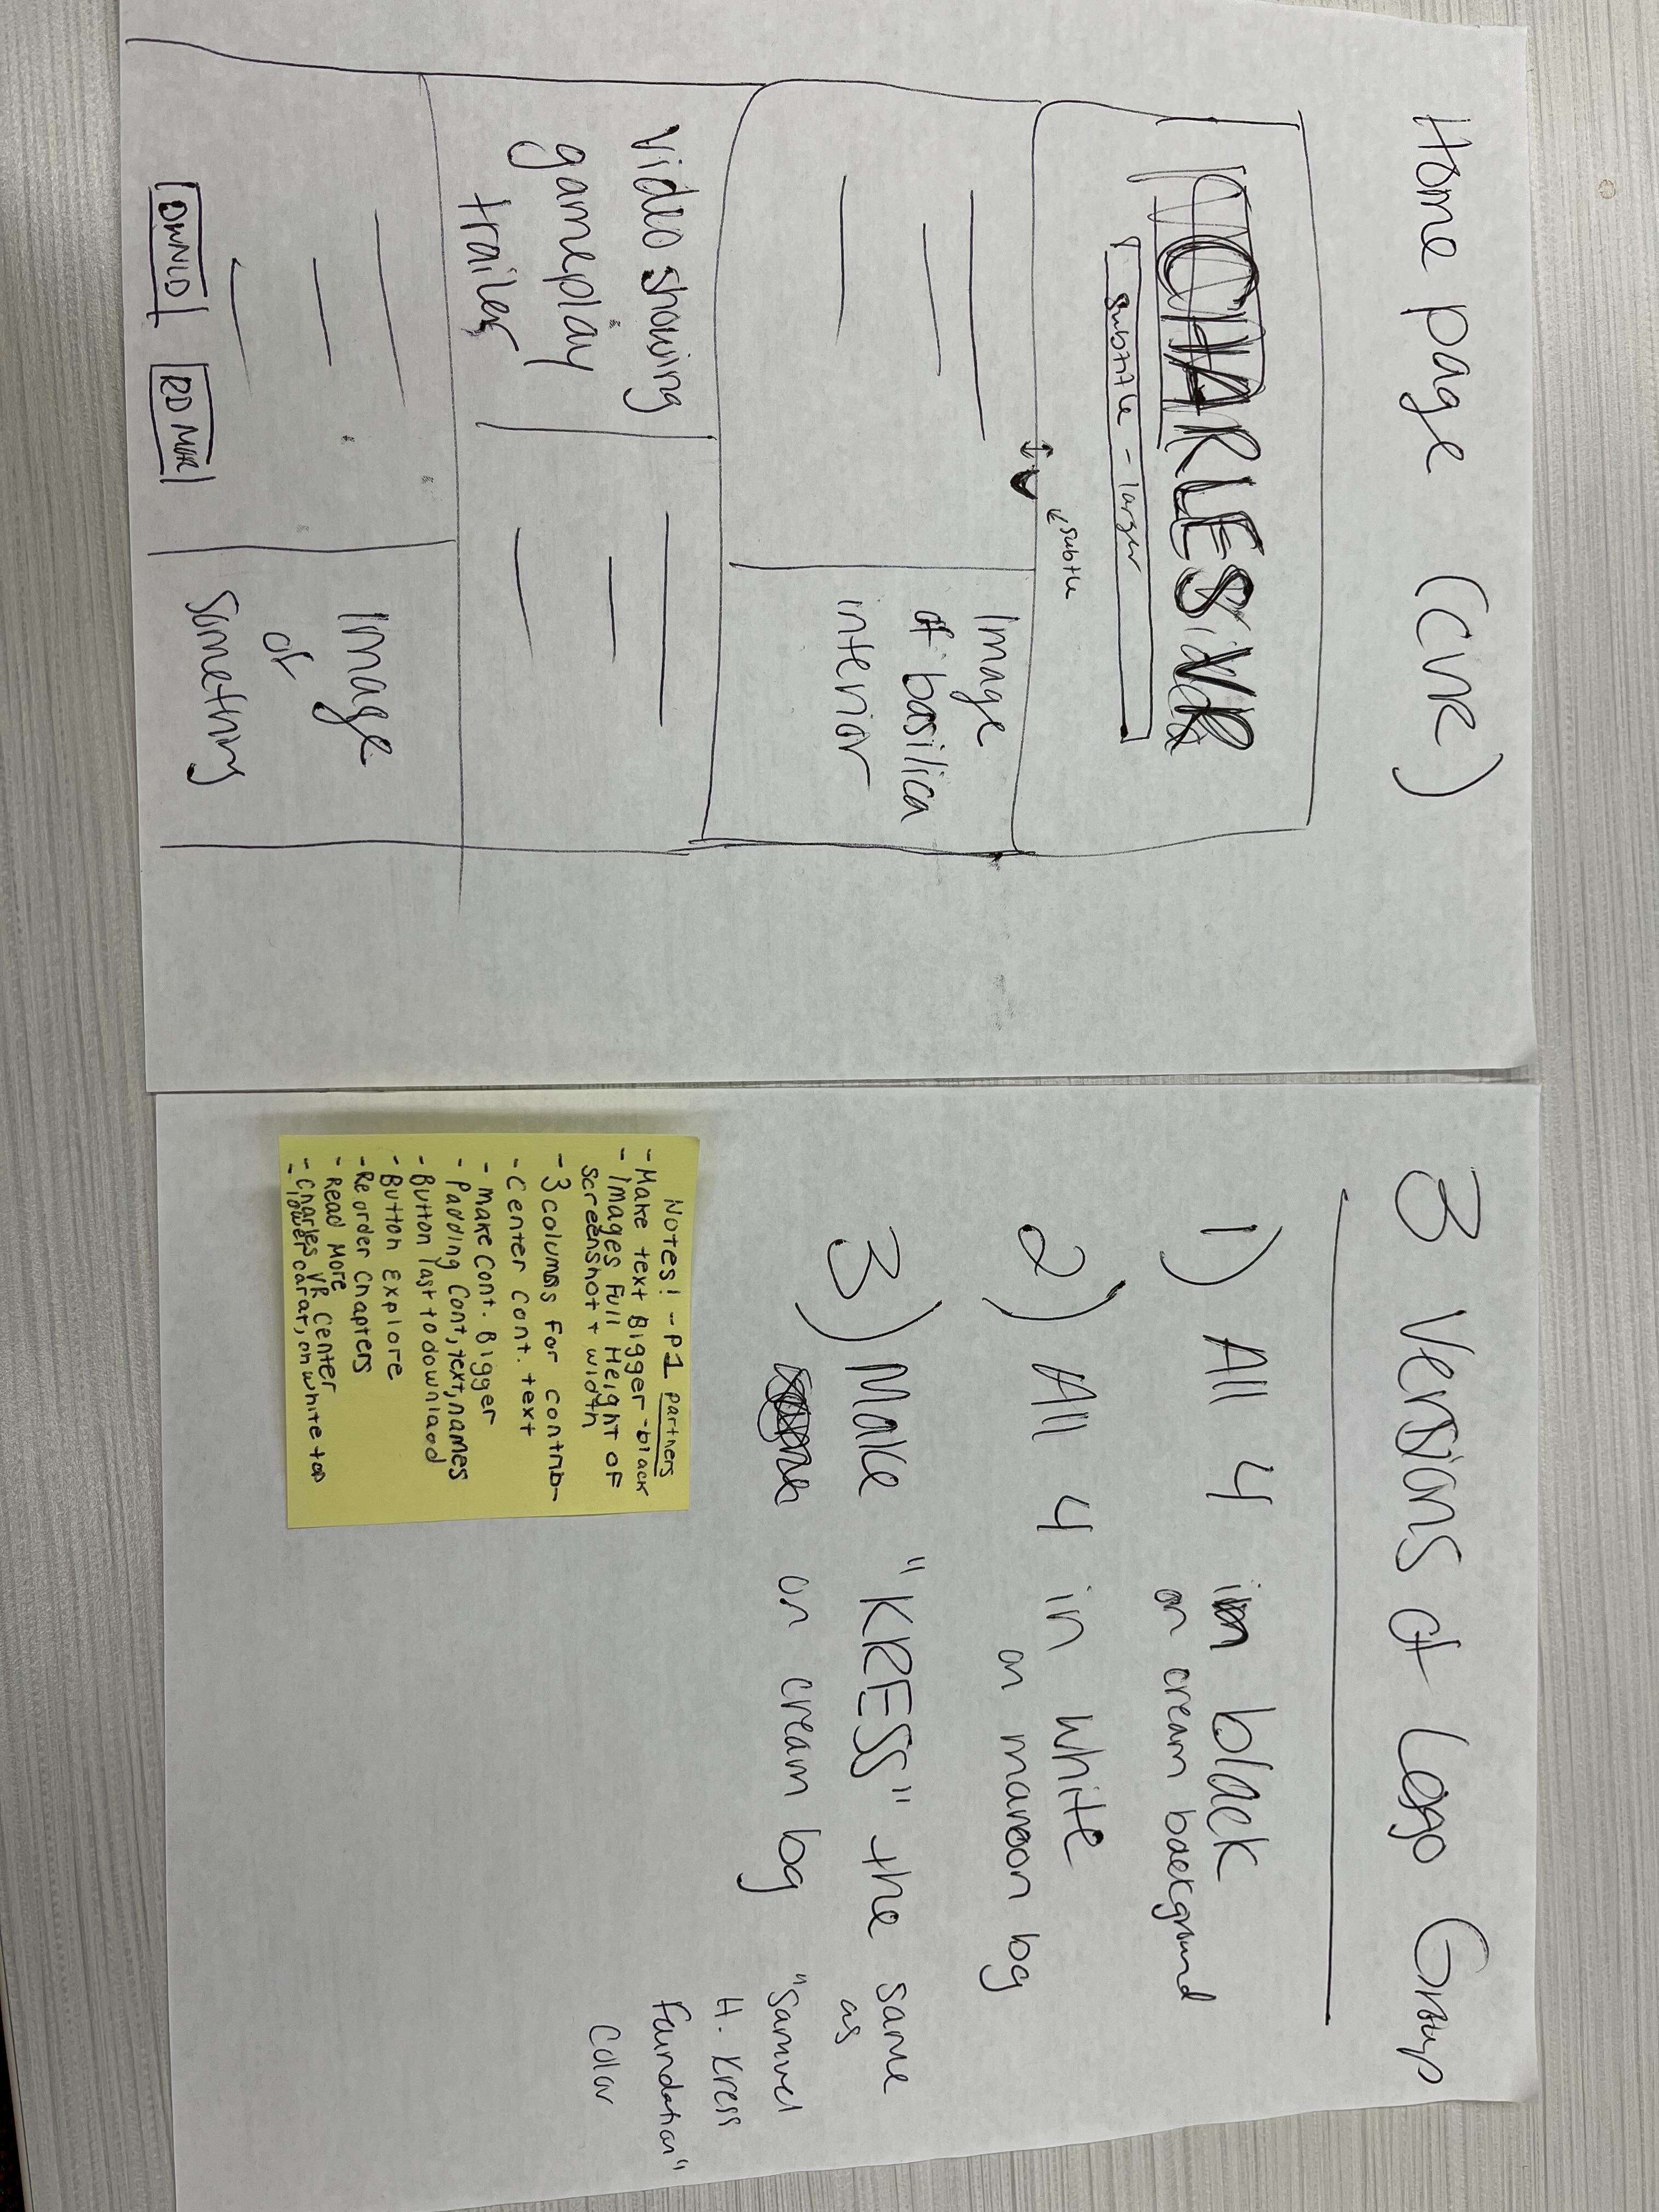 Home page (CVR)
CHARLES VR
subtitle - larger
subtle
Image
of basilica
interior
Video showing
gameplay
trailer
Image
of
Something
DWNLD RD MOR
3 Versions of Logo Group
1) All 4 in black
on cream background
2) All 4 in white
on maroon bg
3) Make "KRESS" the same
as
on cream bg
"Samuel
H. Kress
Foundation"
Color
Notes! - P1 partners
- Make text Bigger - black
- Images Full Height OF
screenshot + width
- 3 columns For contrib-
- Center Cont. text
- Make Cont. Bigger
- Padding Cont, text, names
- Button last to downlaod
- Button Explore
- Re order Chapters
- Read More
- Charles VR Center
- lower carat, on white top